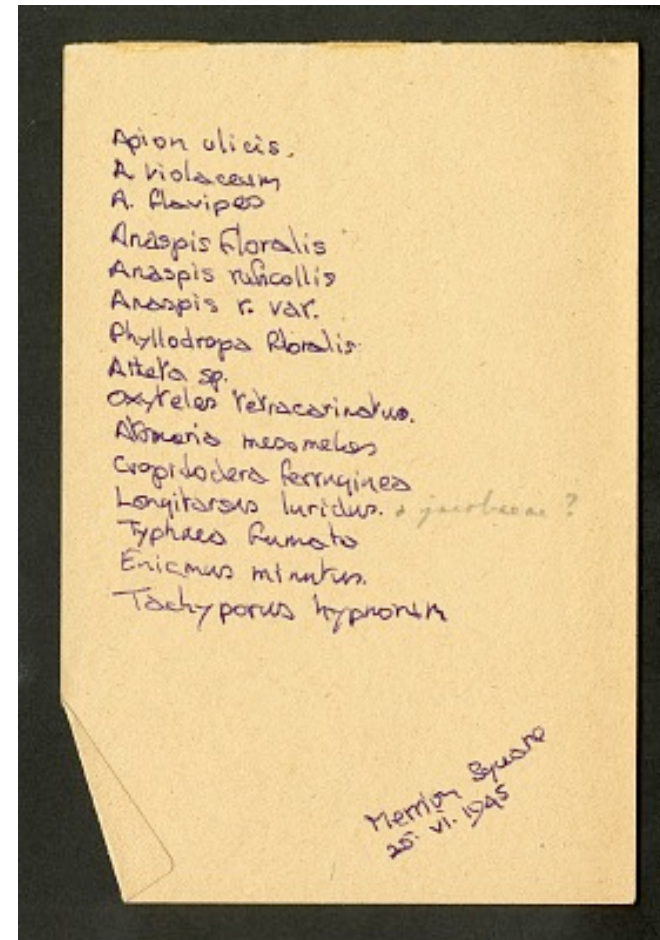 Apion ulicis.
A violaceum
A. flavipes
Anaspis floralis
Anaspis ruficollis
Anaspis r. var.
Phyllodropa floralis
Atheta sp.
Oxyteles tetracarinatus.
Atomaria mesomelas
Crepidodera ferruginea
Longitarsus luridus. & jacobaeae ?
Typhaea fumata
Enicmus minutus.
Tachyporus hypnorum
Merrion Square
25. VI. 1945